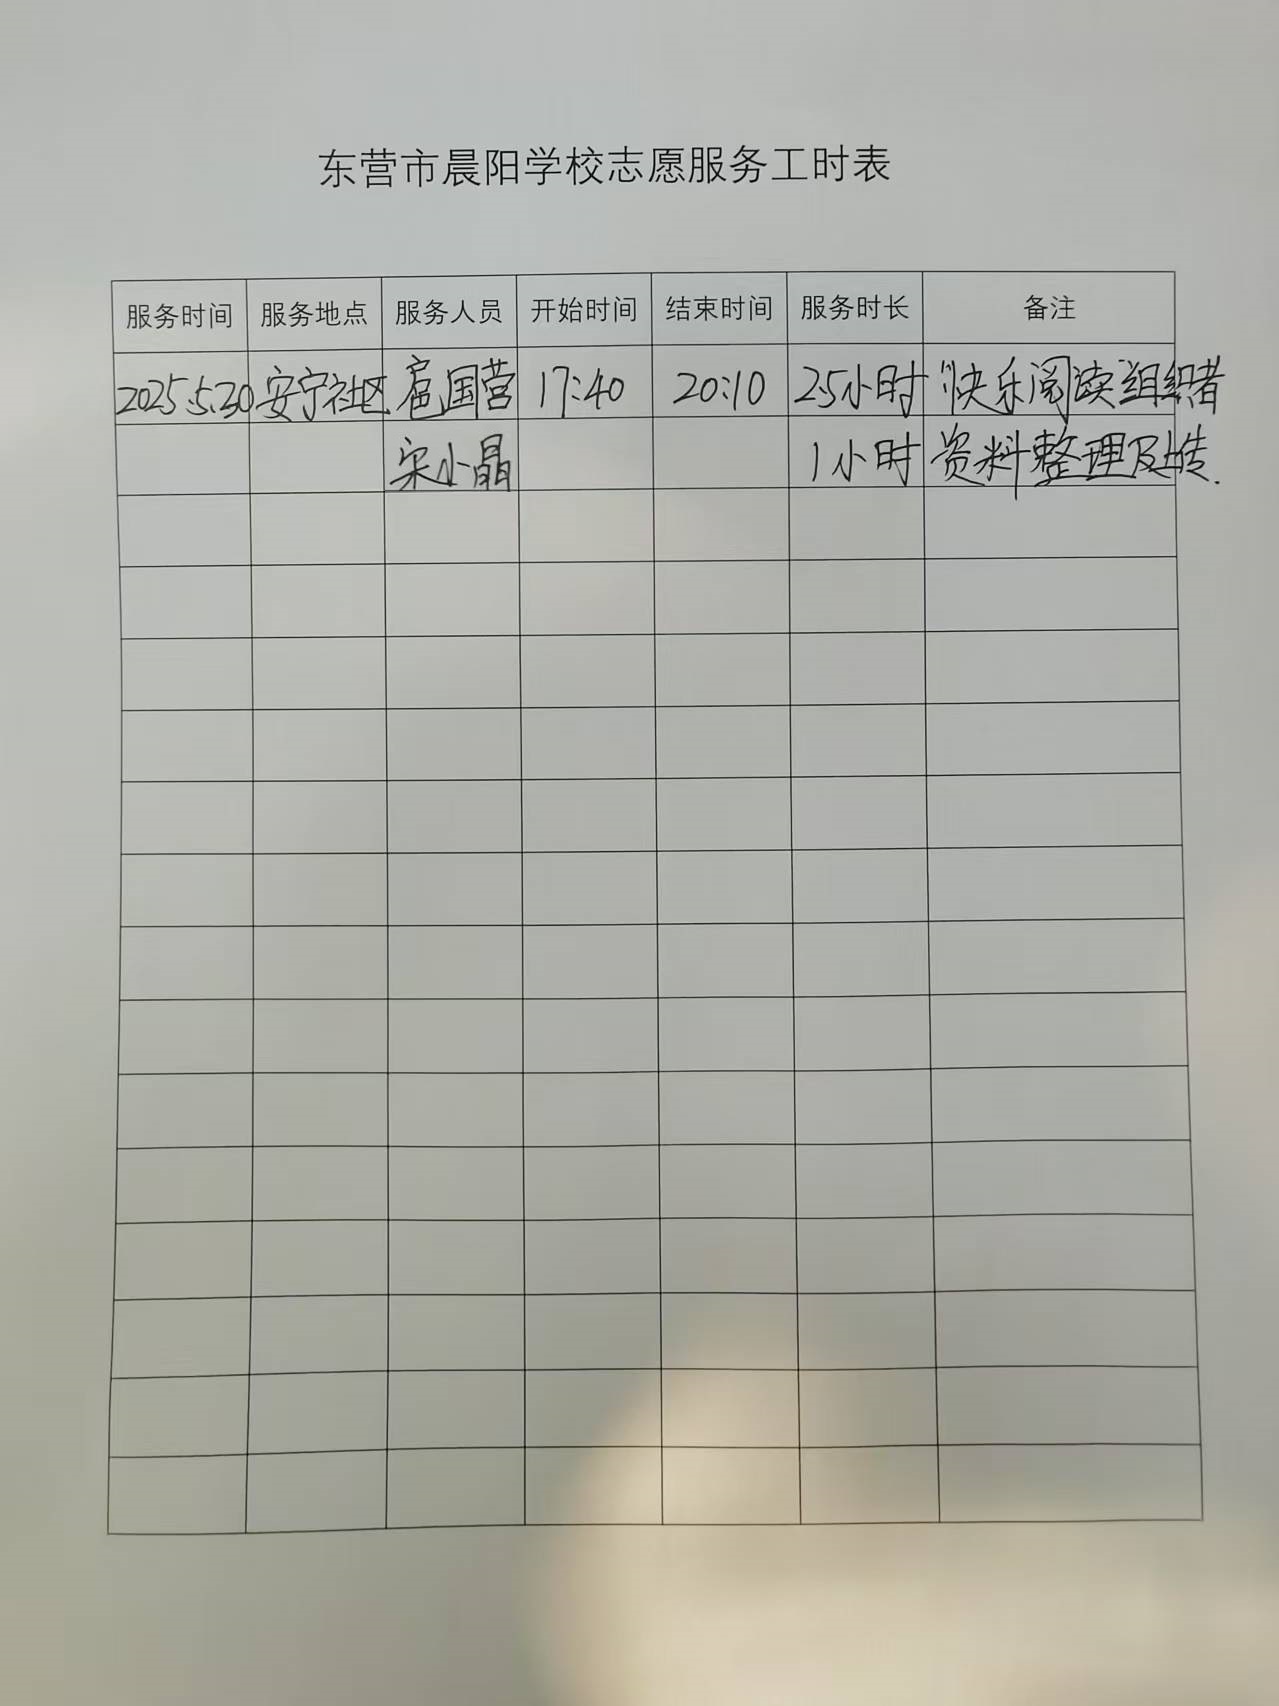 东营市晨阳学校志愿服务工时表
服务时间 服务地点 服务人员 开始时间 结束时间 服务时长 备注
2025.5.30 安宁社区 扈国营 17:40 20:10 2.5小时 "快乐阅读"组织者
宋小晶 1小时 资料整理及上传.